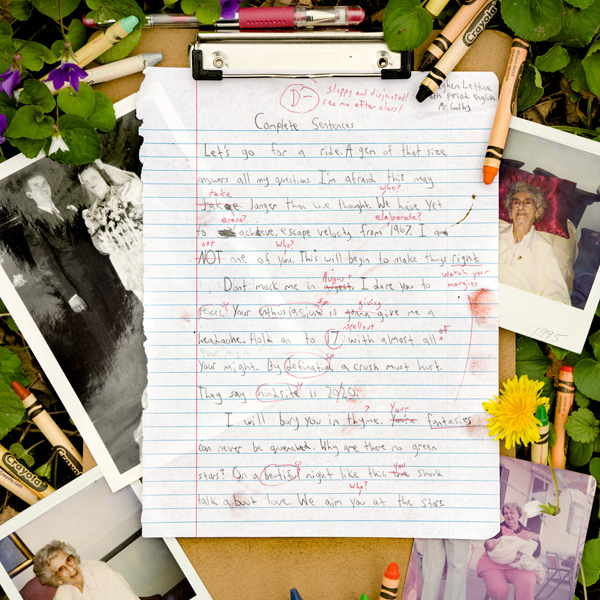 Crayola
D-
sloppy and disjointed!
see me after class!
Lettuce
period english
Mr.
Complete Sentences
Let's go for a ride. A gem of that size
answers all my questions I'm afraid this may
take who?
longer than we thought. We have yet
erase? elaborate?
to achieve, escape velocity from 1967. I am
not who?
NOT one of you. This will begin to make things right.
watch your
margins
August
Dont mock me in august. I dare you to
sp sp giving
seices. Your enthusiasium is gonna give me a
spell out
headache. Hold on to 17 with almost all of
your might
sp
Your might. By defination a crush must hurt.
sp
They say hindsite is 20/20.
? Your
I will bury you in thyme. You're fantasies
can never be quenched. Why are there no green
sp you
stars? On a beutiful night like this shouls
who?
talk about love. We aim you at the stars.
1995
Crayola
Crayola